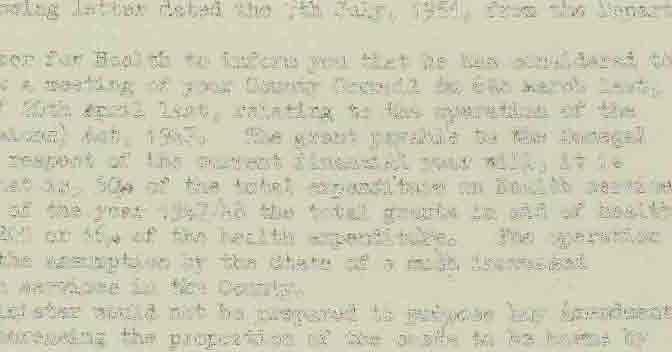 letter dated the 7th July, 1951, from the
for Health to inform you that he has considered
a meeting of your County Council in March last,
April last, relating to the operation of the
Act, 1947. The grant payable to the Donegal
respect of the current financial year will, it is
50% of the total expenditure on health services
of the year 1947/48 the total grants in aid of health
or 16% of the health expenditure. The operation
the assumption by the State of a much increased
services in the County.
would not be prepared to propose any amendment
the proportion of the costs to be borne by